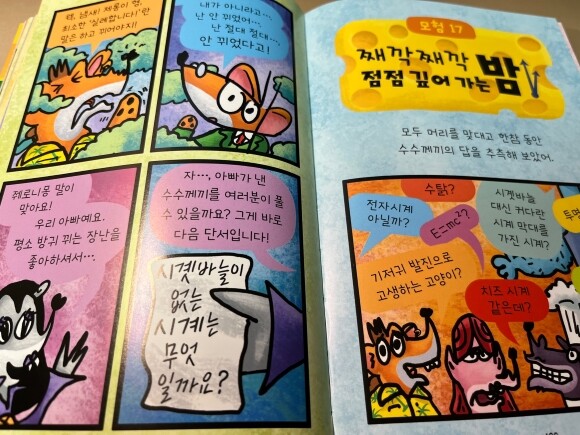 냄새! 제롬이 형,
최소한 '실례합니다!'란
말은 하고 뀌어야지!
내가 아니라고…
난 안 뀌었어…
난 절대 절대…
안 뀌었다고!
쥐로니몽 말이
맞아요!
우리 아빠예요.
평소 방귀 뀌는 장난을
좋아하셔서…
자…, 아빠가 낸
수수께끼를 여러분이 풀
수 있을까요? 그게 바로
다음 단서입니다!
시곗바늘이
없는
시계는
무엇
일까요?
모험 17
째깍째깍
점점 깊어 가는 밤
모두 머리를 맞대고 한참 동안
수수께끼의 답을 추측해 보았어.
전자시계
아닐까?
수탉?
E=mc²?
시곗바늘
대신 커다란
시계 막대를
가진 시계?
투명
기저귀 발진으로
고생하는 고양이?
치즈 시계
같은데?